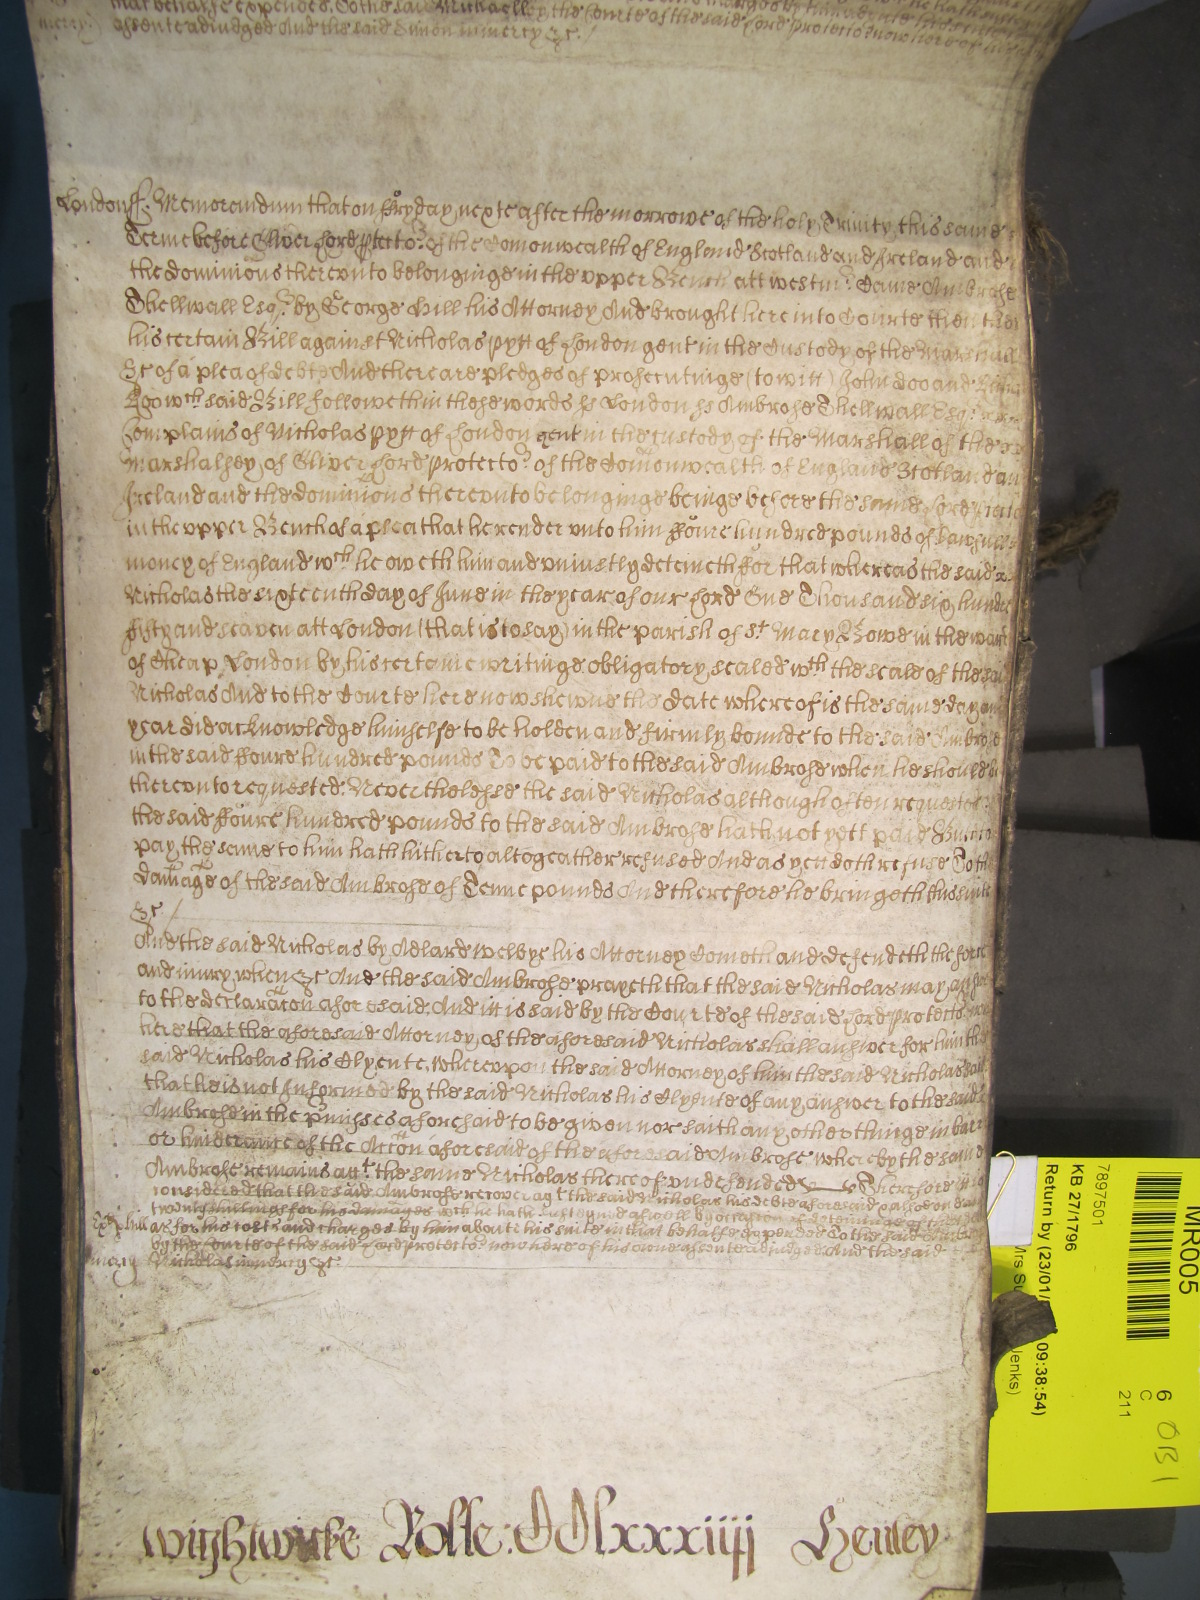 that behalfe expended. To the said Michaell by the Courte of the said Lord Protector now here of his
mercy assente adiudged And the said Simon in mercy &c.
London ss. Memorandum that on ffryday next after the morrowe of the holy Trinity this same
Terme before Oliver Lord Protector of the Comonwealth of England Scotland and Ireland and
the dominions thereunto belonginge in the vpper Bench att westmr. Came Ambrose
Thellwall Esqr. by George Hill his Attorney And brought here into Courte then there
his certain Bill against Nicholas Pytt of London gent in the Custody of the Marshall
&c of a plea of debt And there are pledges of prosecutinge (to witt) John Doo and
Roo wch said Bill followeth in these words ss London ss Ambrose Thellwall Esqr.
Complains of Nicholas Pytt of London gent in the custody of the Marshall of the
Marshalsey of Oliver Lord Protector of the Comonwealth of England Scotland and
Ireland and the dominions thereunto belonginge beinge before the same Lord
in the vpper Bench of a plea that he render vnto him ffoure hundred pounds of lawfull
money of England wch he oweth him and vniustly deteineth ffor that whereas the said
Nicholas the sixteenth day of June in the year of our Lord One Thousand six hundred
fifty and seaven att London (that is to say) in the parish of St Mary Bowe in the ward
of Cheap London by his certaine writinge obligatory sealed wth the seale of the said
Nicholas And to the Courte here now shewne the date whereof is the same day and
year did acknowledge himselfe to be holden and firmly bounde to the said Ambrose
in the said ffoure hundred pounds To be paid to the said Ambrose when he should be
thereunto requested. Neverthelesse the said Nicholas although often requested
the said ffoure hundred pounds to the said Ambrose hath not yett paid But to
pay the same to him hath hitherto altogeather refused And as yett doth refuse To the
damage of the said Ambrose of Tenne pounds And therefore he bringeth this suite
&c /
And the said Nicholas by Adlard Welbye his Attorney Cometh and defendeth the force
and iniury when &c And the said Ambrose prayeth that the said Nicholas may answer
to the declaracon aforesaid. And it is said by the Courte of the said Lord Protector now
here that the aforesaid Attorney of the aforesaid Nicholas shall answer for him the
said Nicholas his Clyente, whereupon the said Attorney of him the said Nicholas saith
that he is not Informed by the said Nicholas his Clyente of any answer to the said
Ambrose in the pmisses aforesaid to be given nor saith any other thinge in barr
or hinderance of the Accon aforesaid of the aforesaid Ambrose whereby the same
Ambrose remaines agt. the same Nicholas thereof vndefended Therefore it is
considered that the said Ambrose recover agt the said Nicholas his debt aforesaid as also
twenty shillings for his damages wch he hath susteyned aswell by occasion of deteininge of that debt
as for his costs and charges by him about his suite in that behalfe expended To the said Ambrose
by the Courte of the said Lord Protector now here of his owne assente adiudged And the said
mercy Nicholas in mercy &c.
Wightwicke Rolle: CClxxxiiij Henley
MR005
6
C
211
OB1
7897501
KB 27/1796
Return by (23/01/ 09:38:54)